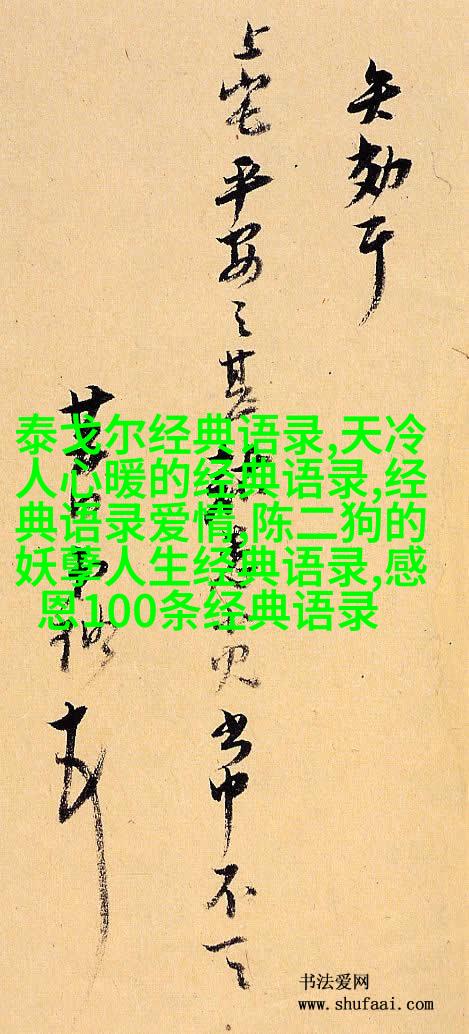 上宅平安之甚
书中不一一
泰戈尔经典语录,天冷
人心暖的经典语录,经
典语录爱情,陈二狗的
妖孽人生经典语录,感
恩100条经典语录
书法爱网
www.shufaai.com